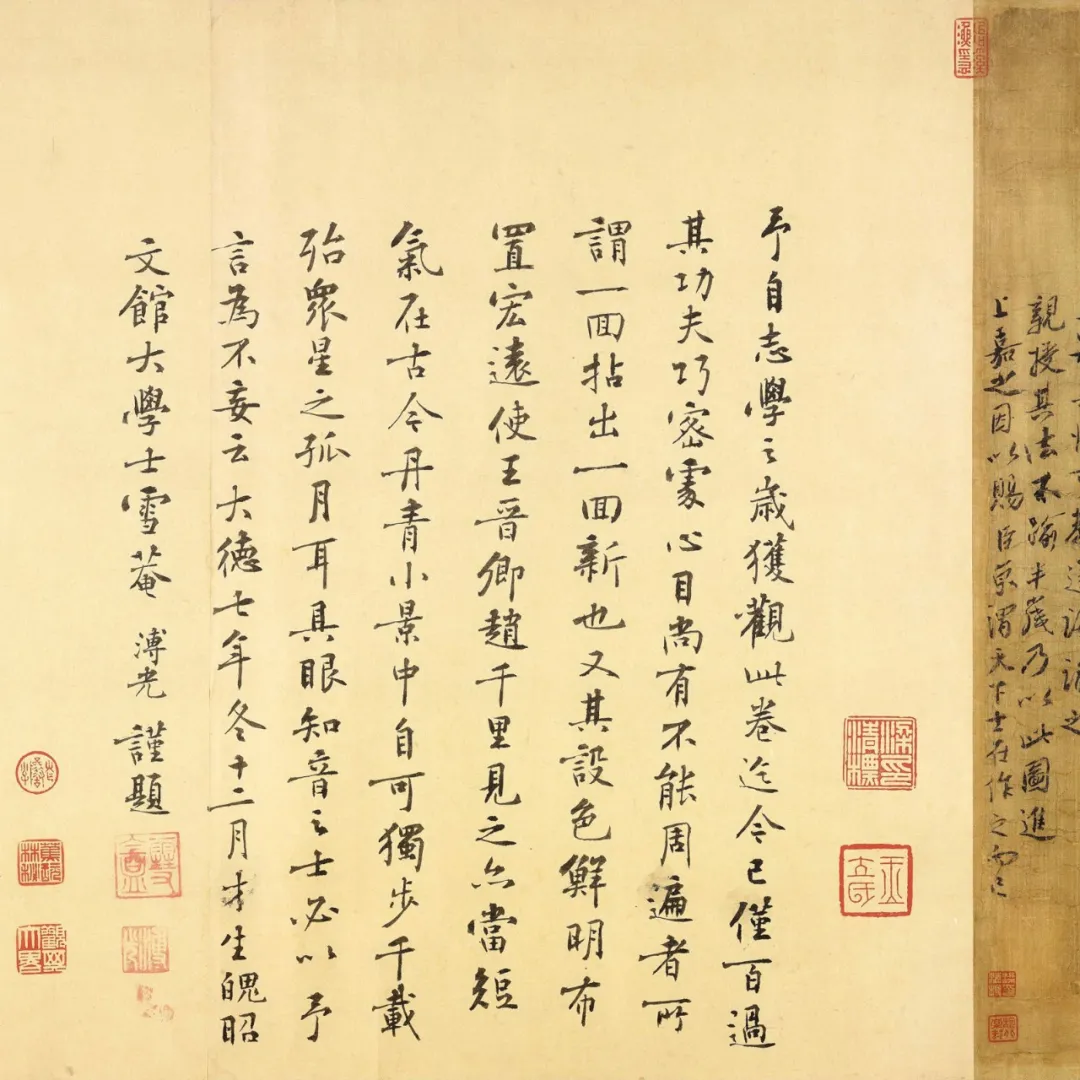 性可教遂誨諭之
親授其法不踰半歲乃以此圖進
上嘉之因以賜臣京謂天下士在作之而已
予自志學之歲獲觀此卷迄今已僅百過
其功夫巧密處心目尚有不能周遍者所
謂一回拈出一回新也又其設色鮮明布
置宏遠使王晉卿趙千里見之亦當短
氣在古今丹青小景中自可獨步千載
殆眾星之孤月耳具眼知音之士必以予
言為不妄云大德七年冬十二月才生魄昭
文館大學士雪菴 溥光 謹題